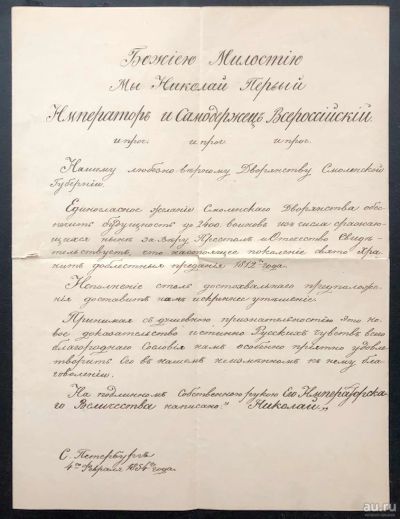 Божіею Милостію
Мы Николай Первый
Императоръ и Самодержецъ Всероссійскій
и проч. и проч. и проч.
Нашему любезно вѣрному Дворянству Смоленской
Губерніи.
Единогласное желаніе Смоленскаго Дворянства обез
печить будущность до 2400 воиновъ изъ числа сражаю-
щихся нынѣ за Вѣру Престолъ и Отечество Свидѣ-
тельствуетъ, что настоящее поколѣніе свято хра-
нитъ доблестныя преданія 1812го года.
Исполненіе столь достохвальнаго предположе-
нія доставитъ намъ искреннее утѣшеніе.
Принимая съ душевною признательностію это но-
вое доказательство истинно Русскихъ чувствъ всего
благороднаго Сословія намъ особенно пріятно удовле-
творить Его въ нашемъ неизмѣнномъ къ нему бла-
говоленіи.
На подлинномъ Собственною рукою Его Императорска-
го Величества написано: "Николай"
С. Петербургъ
4го Февраля 1854го года.
au.ru